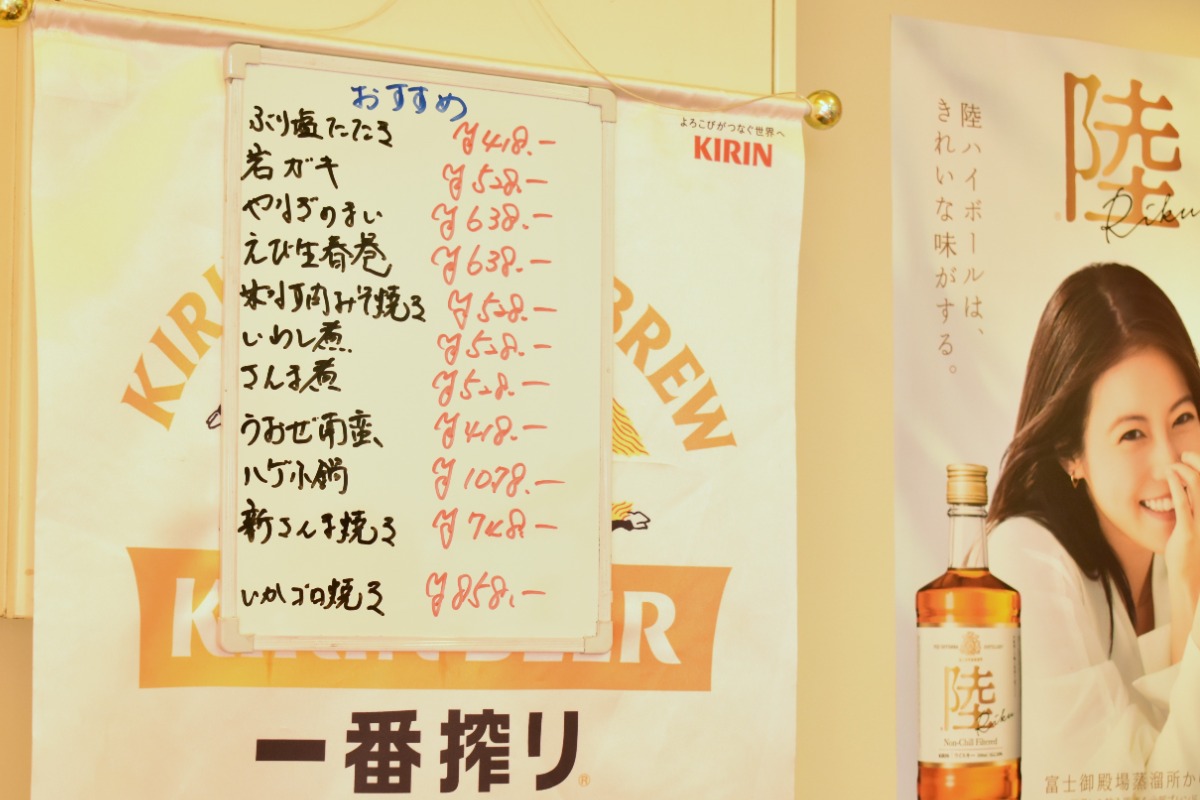 おすすめ
ぶり塩たたき ¥418.-
岩ガキ ¥528.-
¥638.-
えび生春巻 ¥638.-
肉みそ焼き ¥528.-
いわし煮 ¥528.-
さんま煮 ¥528.-
うおぜ南蛮 ¥418.-
ハゲ小鍋 ¥1078.-
新さんま焼き ¥748.-
いかゴロ焼き ¥858.-
よろこびがつなぐ世界へ
KIRIN
BREW
一番搾り
陸
Riku
陸ハイボールは、
きれいな味がする。
陸
Riku
Non-Chill Filtered
富士御殿場蒸溜所か